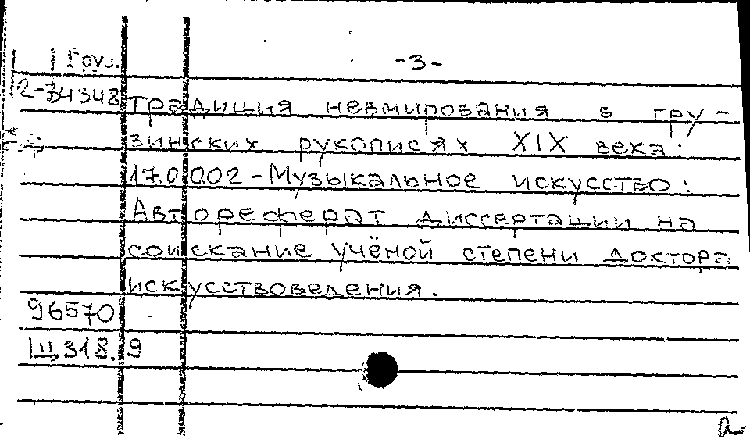 Груз. -3-
2-34348 традиция невмирования в гру-
зинских рукописях XIX века:
17.00.02 - Музыкальное искусство:
Автореферат диссертации на
соискание учёной степени доктора
искусствоведения.
96570
III.318.9